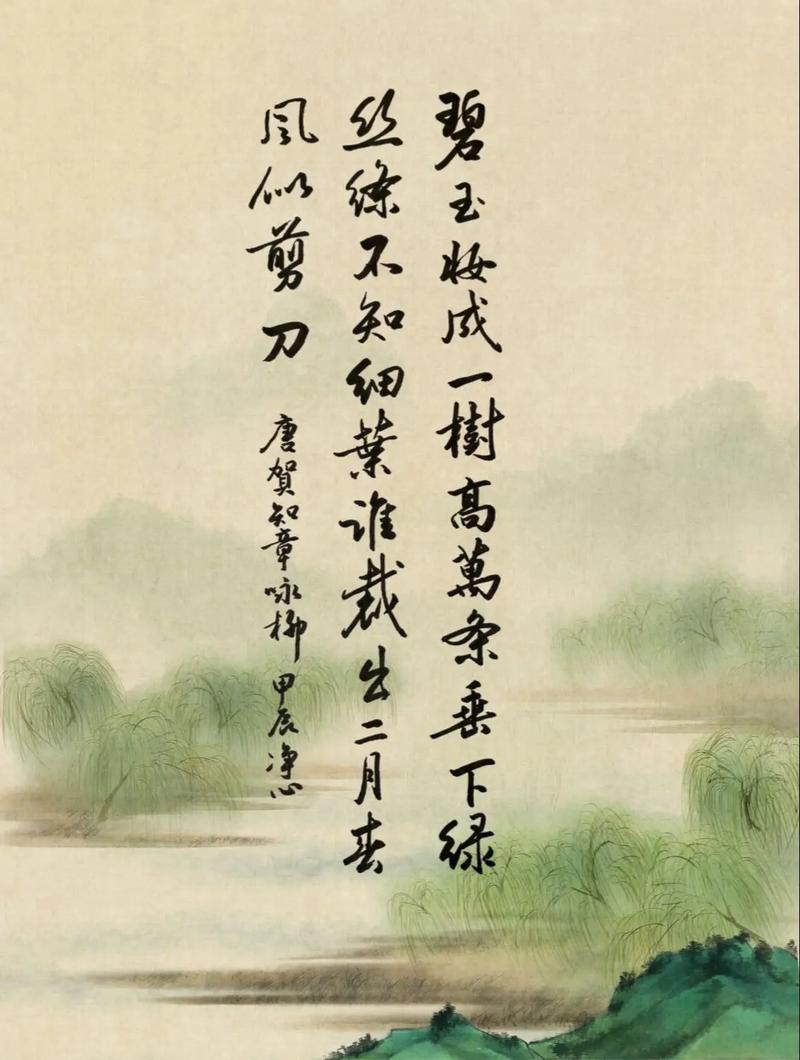 碧玉妝成一樹高萬条垂下緑
丝絛不知细葉誰裁出二月春
風似剪刀
唐賀知章咏柳 甲辰净心